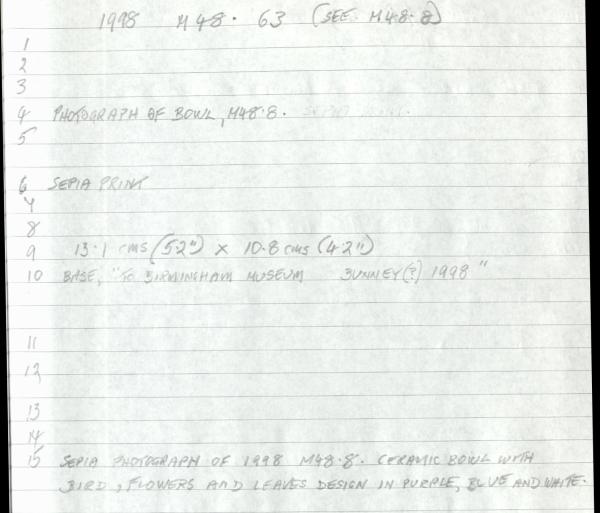 1998 M48.63 (SEE M48.8)
1
2
3
4 PHOTOGRAPH OF BOWL, M48.8. SEPIA PRINT.
5
6 SEPIA PRINT
7
8
9 13.1 cms (5.2") x 10.8 cms (4.2")
10 BASE, "TO BIRMINGHAM MUSEUM BUNNEY(?) 1998"
11
12
13
14
15 SEPIA PHOTOGRAPH OF 1998 M48.8. CERAMIC BOWL WITH
BIRD, FLOWERS AND LEAVES DESIGN IN PURPLE, BLUE AND WHITE.